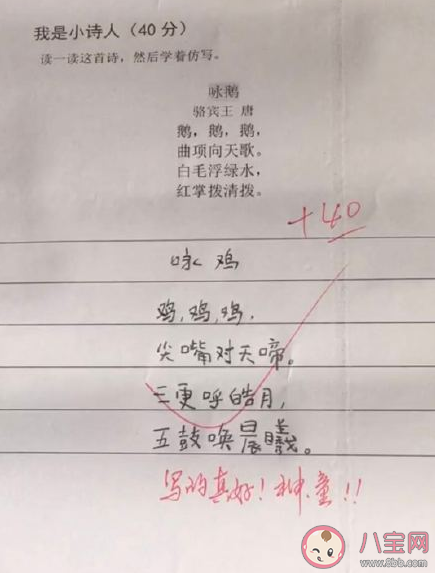 我是小诗人（40分）
读一读这首诗，然后学着仿写。
咏鹅
骆宾王 唐
鹅，鹅，鹅，
曲项向天歌。
白毛浮绿水，
红掌拨清拨。
+40
咏鸡
鸡，鸡，鸡，
尖嘴对天啼。
三更呼皓月，
五鼓唤晨曦。
写的真好！神童！！
八宝网
www.8bb.com